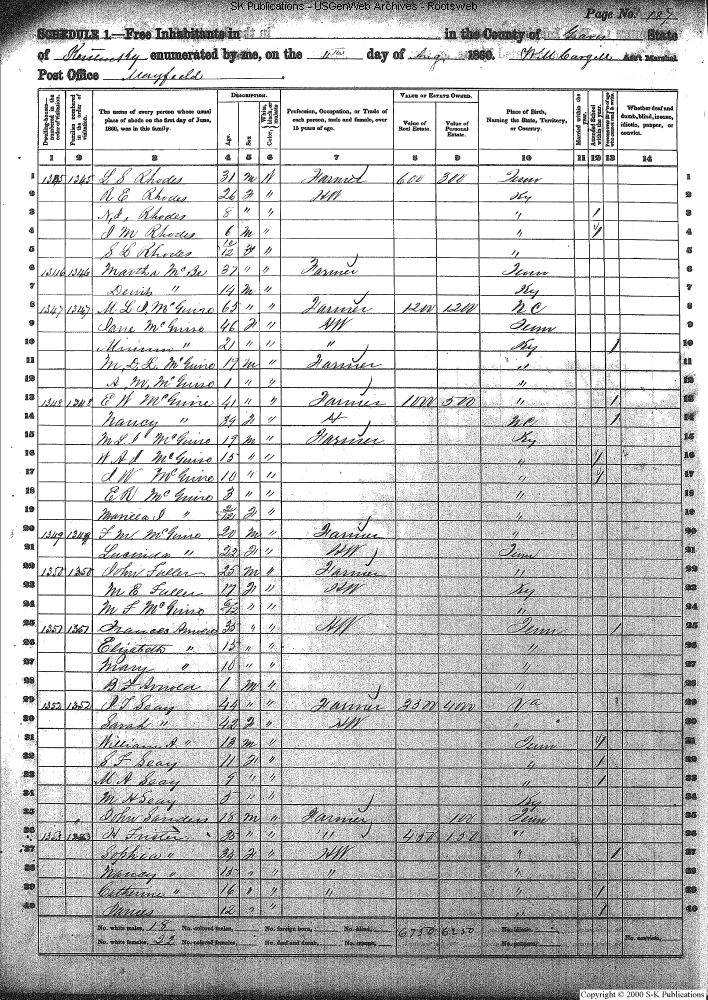 SK Publications - USGenWeb Archives - Rootsweb
Page No. 187
SCHEDULE 1.—Free Inhabitants in in the County of Graves State
of Kentucky enumerated by me, on the 11th day of Aug 1860. Will Cargill Ass't Marshal
Post Office Mayfield
Dwelling-houses—numbered in the order of visitation. Families numbered in the order of visitation. The name of every person whose usual place of abode on the first day of June, 1860, was in this family. DESCRIPTION. Age. Sex. Color, White, black, or mulatto. Profession, Occupation, or Trade of each person, male and female, over 15 years of age. VALUE OF ESTATE OWNED. Value of Real Estate. Value of Personal Estate. Place of Birth, Naming the State, Territory, or Country. Married within the year. Attended School within the year. Whether deaf and dumb, blind, insane, idiotic, pauper, or convict.
1 2 3 4 5 6 7 8 9 10 11 12 13 14
1 1345 1345 L. S Rhodes 31 M W Farmer 600 300 Tenn 1
2 R E Rhodes 26 F " HW Ky 2
3 N. I, Rhodes 8 " " " 1 3
4 I M Rhodes 6 M " " 1 4
5 S L Rhodes 10/12 F " " 5
6 1346 1346 Martha McBe 37 " " Farmer Tenn 6
7 Dennis " 14 M " Ky 7
8 1347 1347 M. L. I. McGuire 65 " " Farmer 1200 1200 NC 8
9 Jane McGuire 46 F " HW Tenn 9
10 " 21 " " " Ky 1 10
11 M, D. L. McGuire 19 M " Farmer " 11
12 A, M, McGuire 1 " " " 12
13 1348 1348 E W McGuire 41 " " Farmer 1000 500 " 1 13
14 Nancy " 39 F " H NC 1 14
15 M L I McGuire 19 M " Farmer Ky 15
16 W A I McGuire 15 " " " 1 16
17 I W McGuire 10 " " " 1 17
18 E R McGuire 3 " " " 18
19 I " /12 F " " 19
20 1349 1349 F M McGuire 20 M " Farmer " 20
21 Lucinda " 22 F " HW Tenn 21
22 1350 1350 John Fuller 25 M " Farmer " 22
23 M E Fuller 17 F " HW Ky 23
24 M F McGuire /12 " " " 24
25 1351 1351 Frances Arnold 35 " " HW Tenn 1 25
26 Elizabeth " 15 " " " 26
27 Mary " 10 " " " 27
28 B F Arnold 1 M " " 28
29 1352 1352 I T Seay 44 " " Farmer 3500 4000 Va 29
30 Sarah " 42 F " HW " 30
31 William A " 13 M " Tenn 1 31
32 S F Seay 11 F " " 1 32
33 M A Seay 9 " " " 1 33
34 M H Seay 5 " " Ky 34
35 John Sanders 18 M " Farmer 100 Tenn 35
36 1353 1353 H Frister 35 " " " 450 150 " 36
37 Sophia " 35 F " HW " 1 37
38 Nancy " 15 " " " " 38
39 Catherine " 16 " " " " 1 39
40 12 " " " 1 40
No. white males, 18 No. colored males, No. foreign born, No. blind, 6750 6250 No. idiotic,
No. white females, 22 No. colored females, No. deaf and dumb, No. insane, No. paupers, No. convicts,
Copyright © 2000 S-K Publications